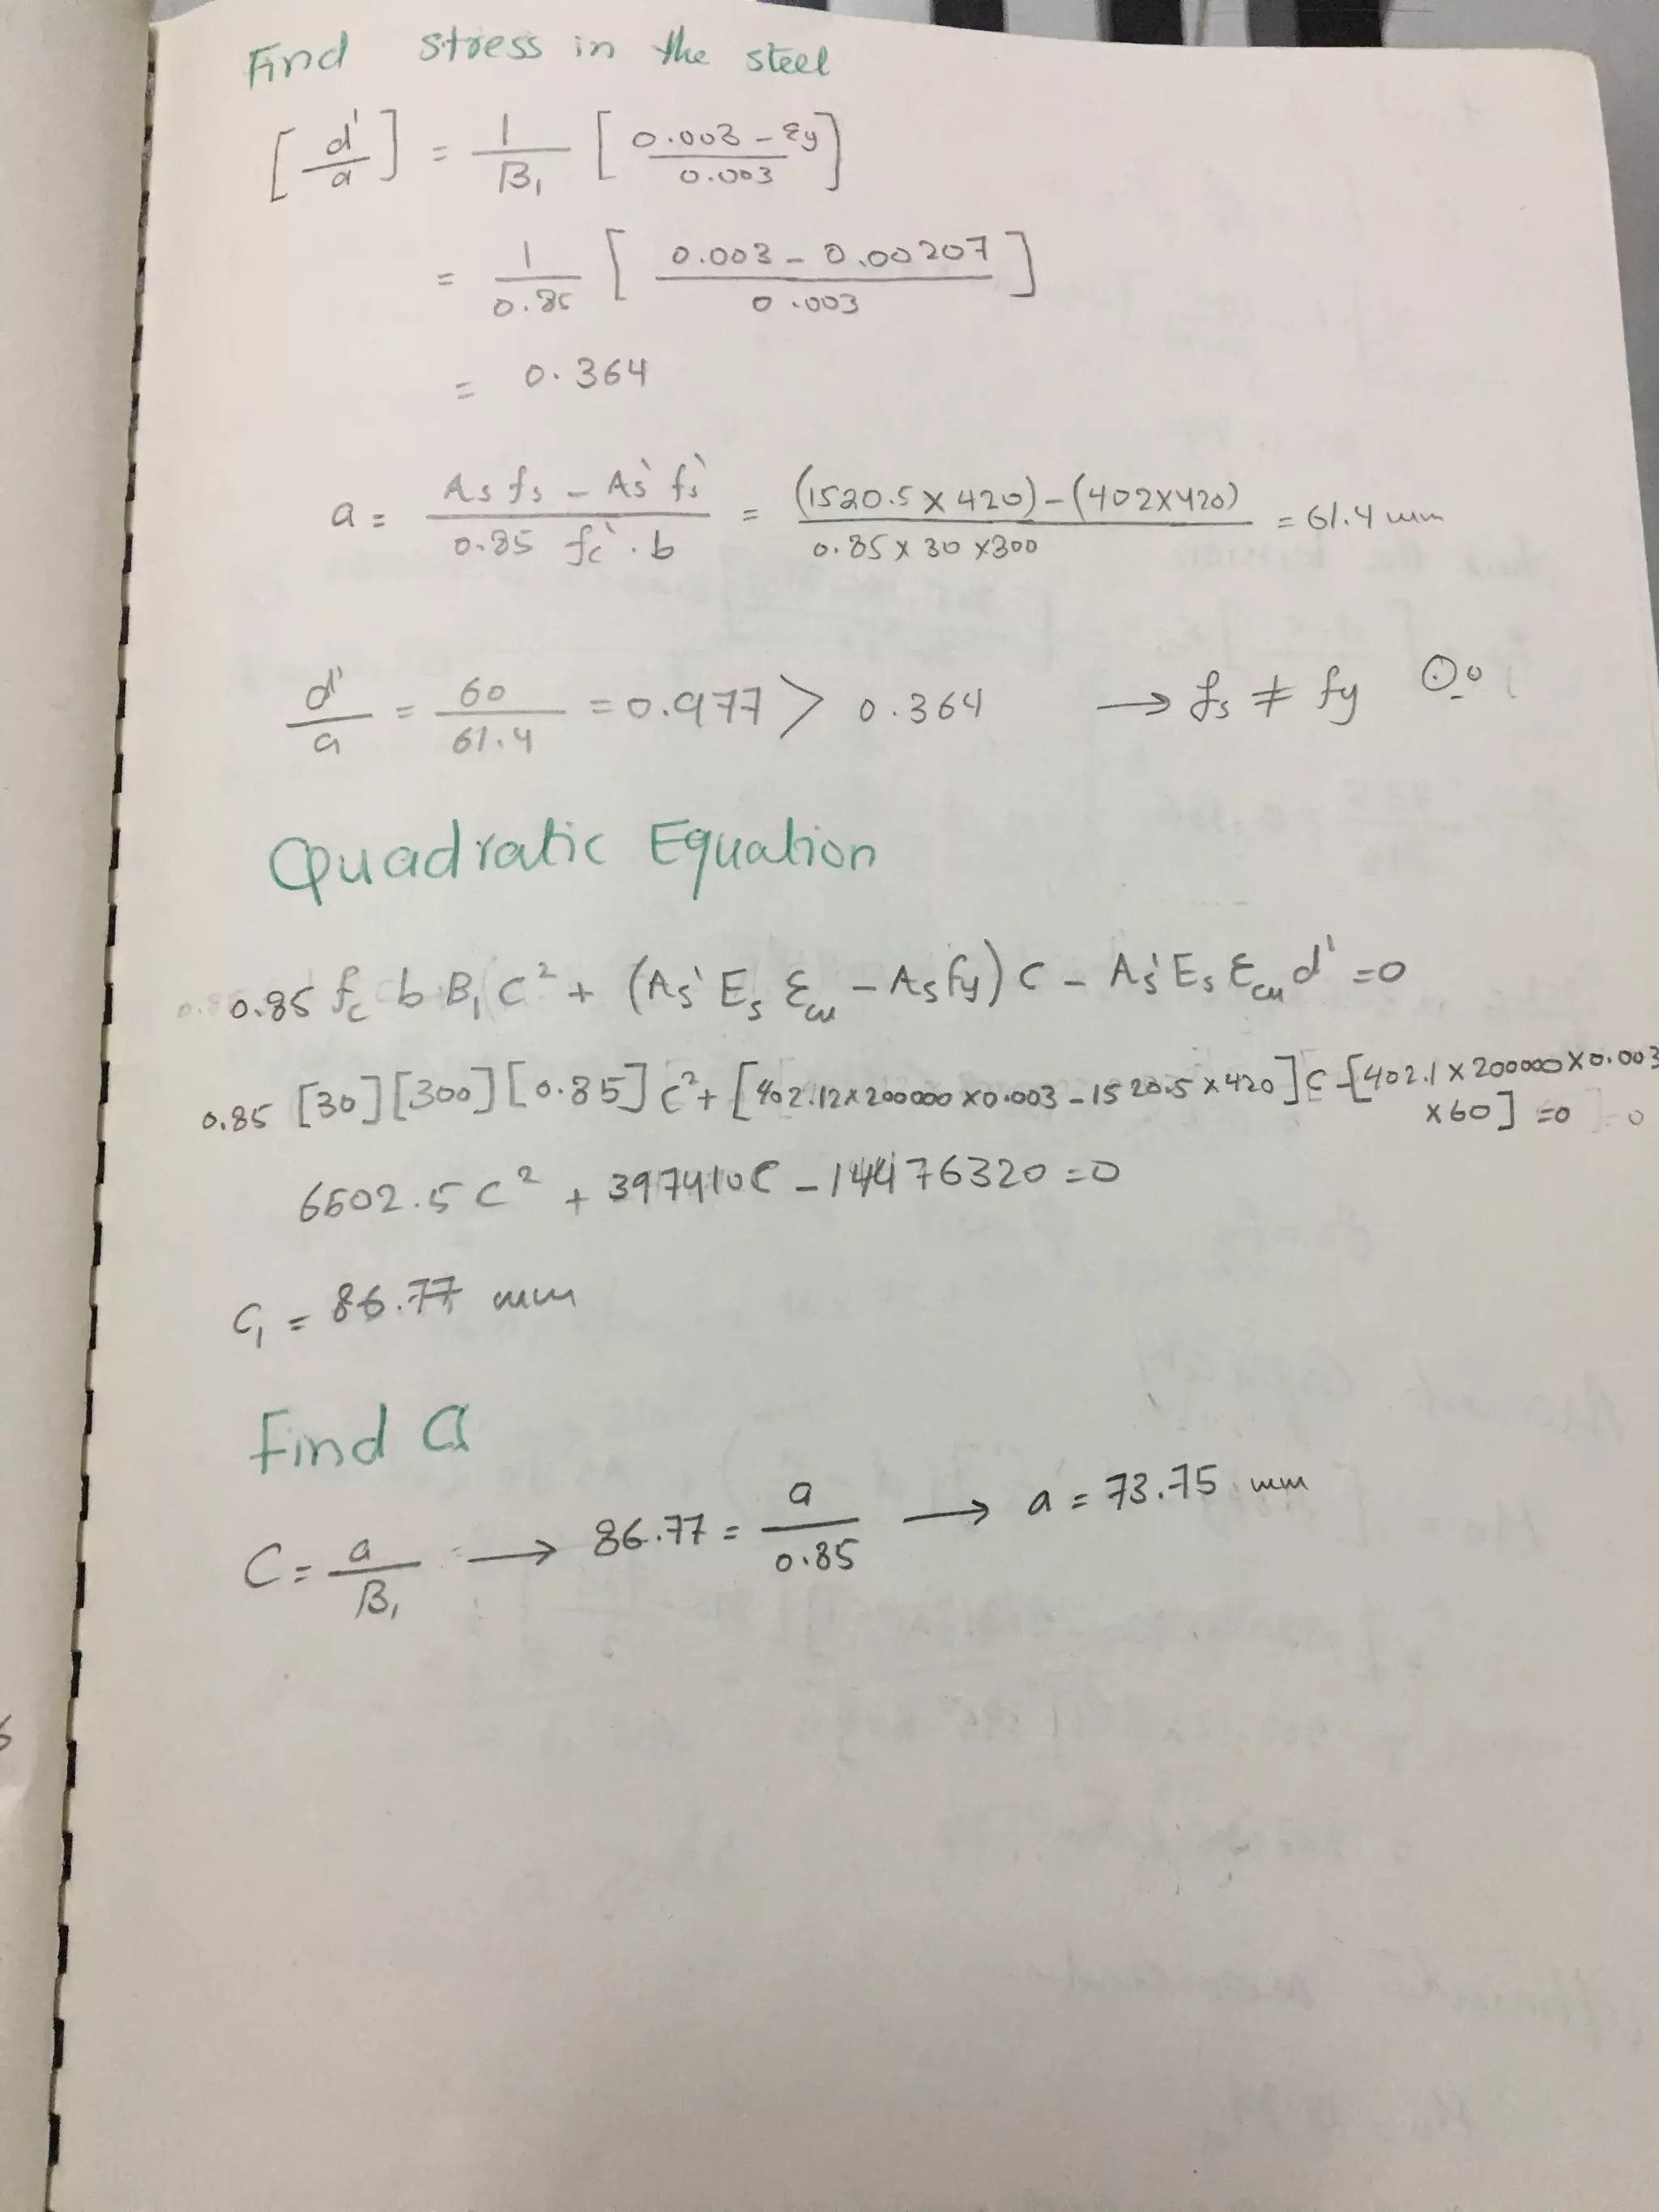 Find stress in the steel
[d'/a] = 1/B₁ [0.003 - εy / 0.003]
= 1/0.85 [0.003 - 0.00207 / 0.003]
= 0.364
a = As fs - As' fs' / 0.85 fc' . b = (1520.5 x 420) - (402 x 420) / 0.85 x 30 x 300 = 61.4 mm
d'/a = 60/61.4 = 0.977 > 0.364 → fs ≠ fy
Quadratic Equation
0.85 fc b B₁ C² + (As' Es εcu - As fy) C - As' Es εcu d' = 0
0.85 [30] [300] [0.85] C² + [402.12 x 200000 x 0.003 - 1520.5 x 420] C - [402.1 x 200000 x 0.003
x 60] = 0
6502.5 C² + 397410C - 14476320 = 0
C₁ = 86.77 mm
Find a
C = a/B₁ → 86.77 = a/0.85 → a = 73.75 mm